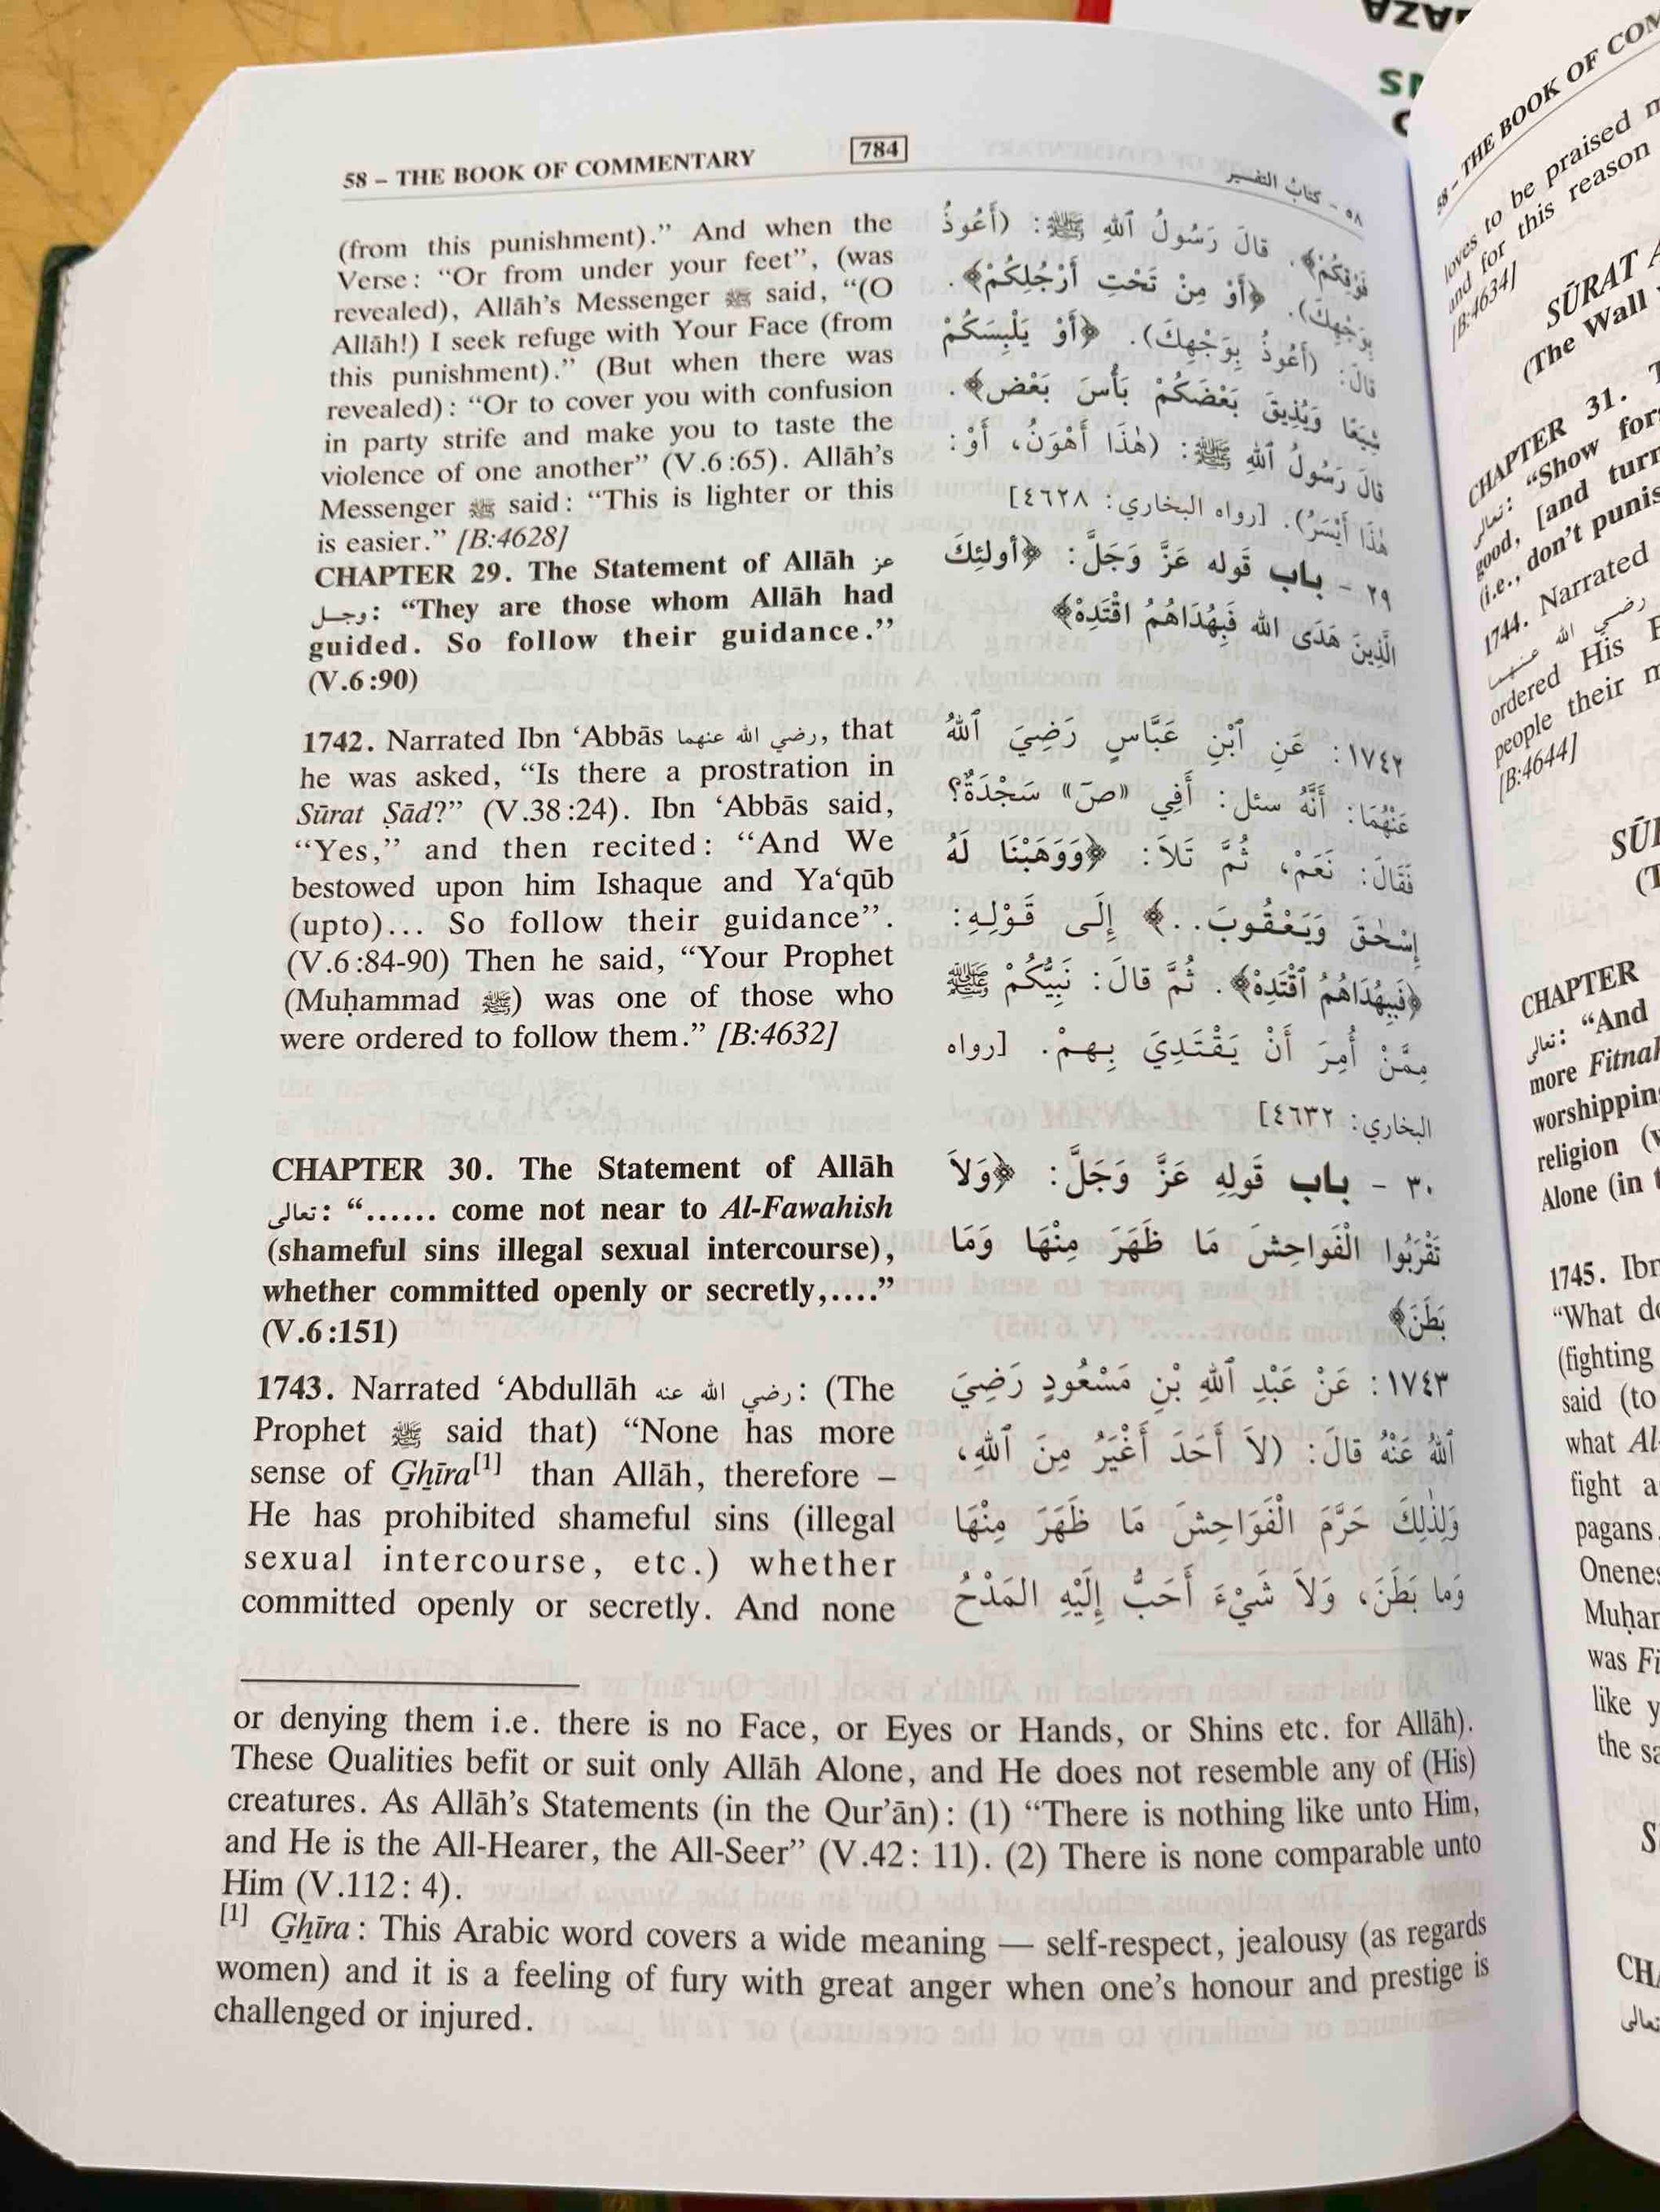 58 – THE BOOK OF COMMENTARY
784
٥٨ – كتابُ التفسير
(from this punishment).” And when the
Verse: “Or from under your feet”, (was
revealed), Allāh’s Messenger ﷺ said, “(O
Allāh!) I seek refuge with Your Face (from
this punishment).” (But when there was
revealed): “Or to cover you with confusion
in party strife and make you to taste the
violence of one another” (V.6:65). Allāh’s
Messenger ﷺ said: “This is lighter or this
is easier.” [B:4628]
CHAPTER 29. The Statement of Allāh عز
وجل: “They are those whom Allāh had
guided. So follow their guidance.”
(V.6:90)
1742. Narrated Ibn ‘Abbās رضي الله عنهما, that
he was asked, “Is there a prostration in
Sūrat Ṣād?” (V.38:24). Ibn ‘Abbās said,
“Yes,” and then recited: “And We
bestowed upon him Ishaque and Ya‘qūb
(upto)... So follow their guidance”.
(V.6:84-90) Then he said, “Your Prophet
(Muḥammad ﷺ) was one of those who
were ordered to follow them.” [B:4632]
CHAPTER 30. The Statement of Allāh
تعالى: “...... come not near to Al-Fawahish
(shameful sins illegal sexual intercourse),
whether committed openly or secretly,....”
(V.6:151)
1743. Narrated ‘Abdullāh رضي الله عنه: (The
Prophet ﷺ said that) “None has more
sense of Ghīra[1] than Allāh, therefore –
He has prohibited shameful sins (illegal
sexual intercourse, etc.) whether
committed openly or secretly. And none
فَوْقِكُمْ﴾. قالَ رَسُولُ ٱللهِ ﷺ: (أَعُوذُ
بِوَجْهِكَ). ﴿أَوْ مِنْ تَحْتِ أَرْجُلِكُمْ﴾.
قالَ: (أَعُوذُ بِوَجْهِكَ). ﴿أَوْ يَلْبِسَكُمْ
شِيَعًا وَيُذِيقَ بَعْضَكُمْ بَأْسَ بَعْضٍ﴾.
قالَ رَسُولُ ٱللهِ ﷺ: (هٰذَا أَهْوَنُ، أَوْ:
هٰذَا أَيْسَرُ). [رواه البخاري: ٤٦٢٨]
٢٩ – باب قَوله عَزَّ وَجَلَّ: ﴿أولئِكَ
الَّذِينَ هَدَى الله فَبِهُدَاهُمُ اقْتَدِهْ﴾
١٧٤٢: عَنِ ٱبْنِ عَبَّاسٍ رَضِيَ ٱللهُ
عَنْهُمَا: أَنَّهُ سئل: أَفِي «صَ» سَجْدَةٌ؟
فَقَالَ: نَعَمْ، ثُمَّ تَلاَ: ﴿وَوَهَبْنَا لَهُ
إِسْحٰقَ وَيَعْقُوبَ..﴾ إِلَى قَوْلِهِ:
﴿فَبِهُدَاهُمُ ٱقْتَدِهْ﴾. ثُمَّ قالَ: نَبِيُّكُمْ ﷺ
مِمَّنْ أُمِرَ أَنْ يَقْتَدِيَ بِهِمْ. [رواه
البخاري: ٤٦٣٢]
٣٠ – باب قَولِهِ عَزَّ وَجَلَّ: ﴿وَلاَ
تَقْرَبُوا الْفَواحِشَ مَا ظَهَرَ مِنْهَا وَمَا
بَطَنَ﴾
١٧٤٣: عَنْ عَبْدِ ٱللهِ بْنِ مَسْعُودٍ رَضِيَ
ٱللهُ عَنْهُ قالَ: (لاَ أَحَدَ أَغْيَرُ مِنَ ٱللهِ،
وَلِذٰلِكَ حَرَّمَ الْفَوَاحِشَ مَا ظَهَرَ مِنْهَا
وَما بَطَنَ، وَلاَ شَيْءَ أَحَبُّ إِلَيْهِ المَدْحُ
or denying them i.e. there is no Face, or Eyes or Hands, or Shins etc. for Allāh).
These Qualities befit or suit only Allāh Alone, and He does not resemble any of (His)
creatures. As Allāh’s Statements (in the Qur’ān): (1) “There is nothing like unto Him,
and He is the All-Hearer, the All-Seer” (V.42: 11). (2) There is none comparable unto
Him (V.112: 4).
[1] Ghīra: This Arabic word covers a wide meaning — self-respect, jealousy (as regards
women) and it is a feeling of fury with great anger when one’s honour and prestige is
challenged or injured.
58 – THE BOOK OF
loves to be praised
and for this reason
[B:4634]
SŪRAT
(The Wall
CHAPTER 31.
تعالى: “Show
good, [and turn
(i.e., don’t
1744. Narrated
رضي الله عنهما
ordered His
people their
[B:4644]
CHAPTER
تعالى: “And
more Fitnah
religion
Alone (in
1745. Ibn
“What
(fighting
said (to
what
fight a
pagans
Muḥam
was
like
the
تعالى